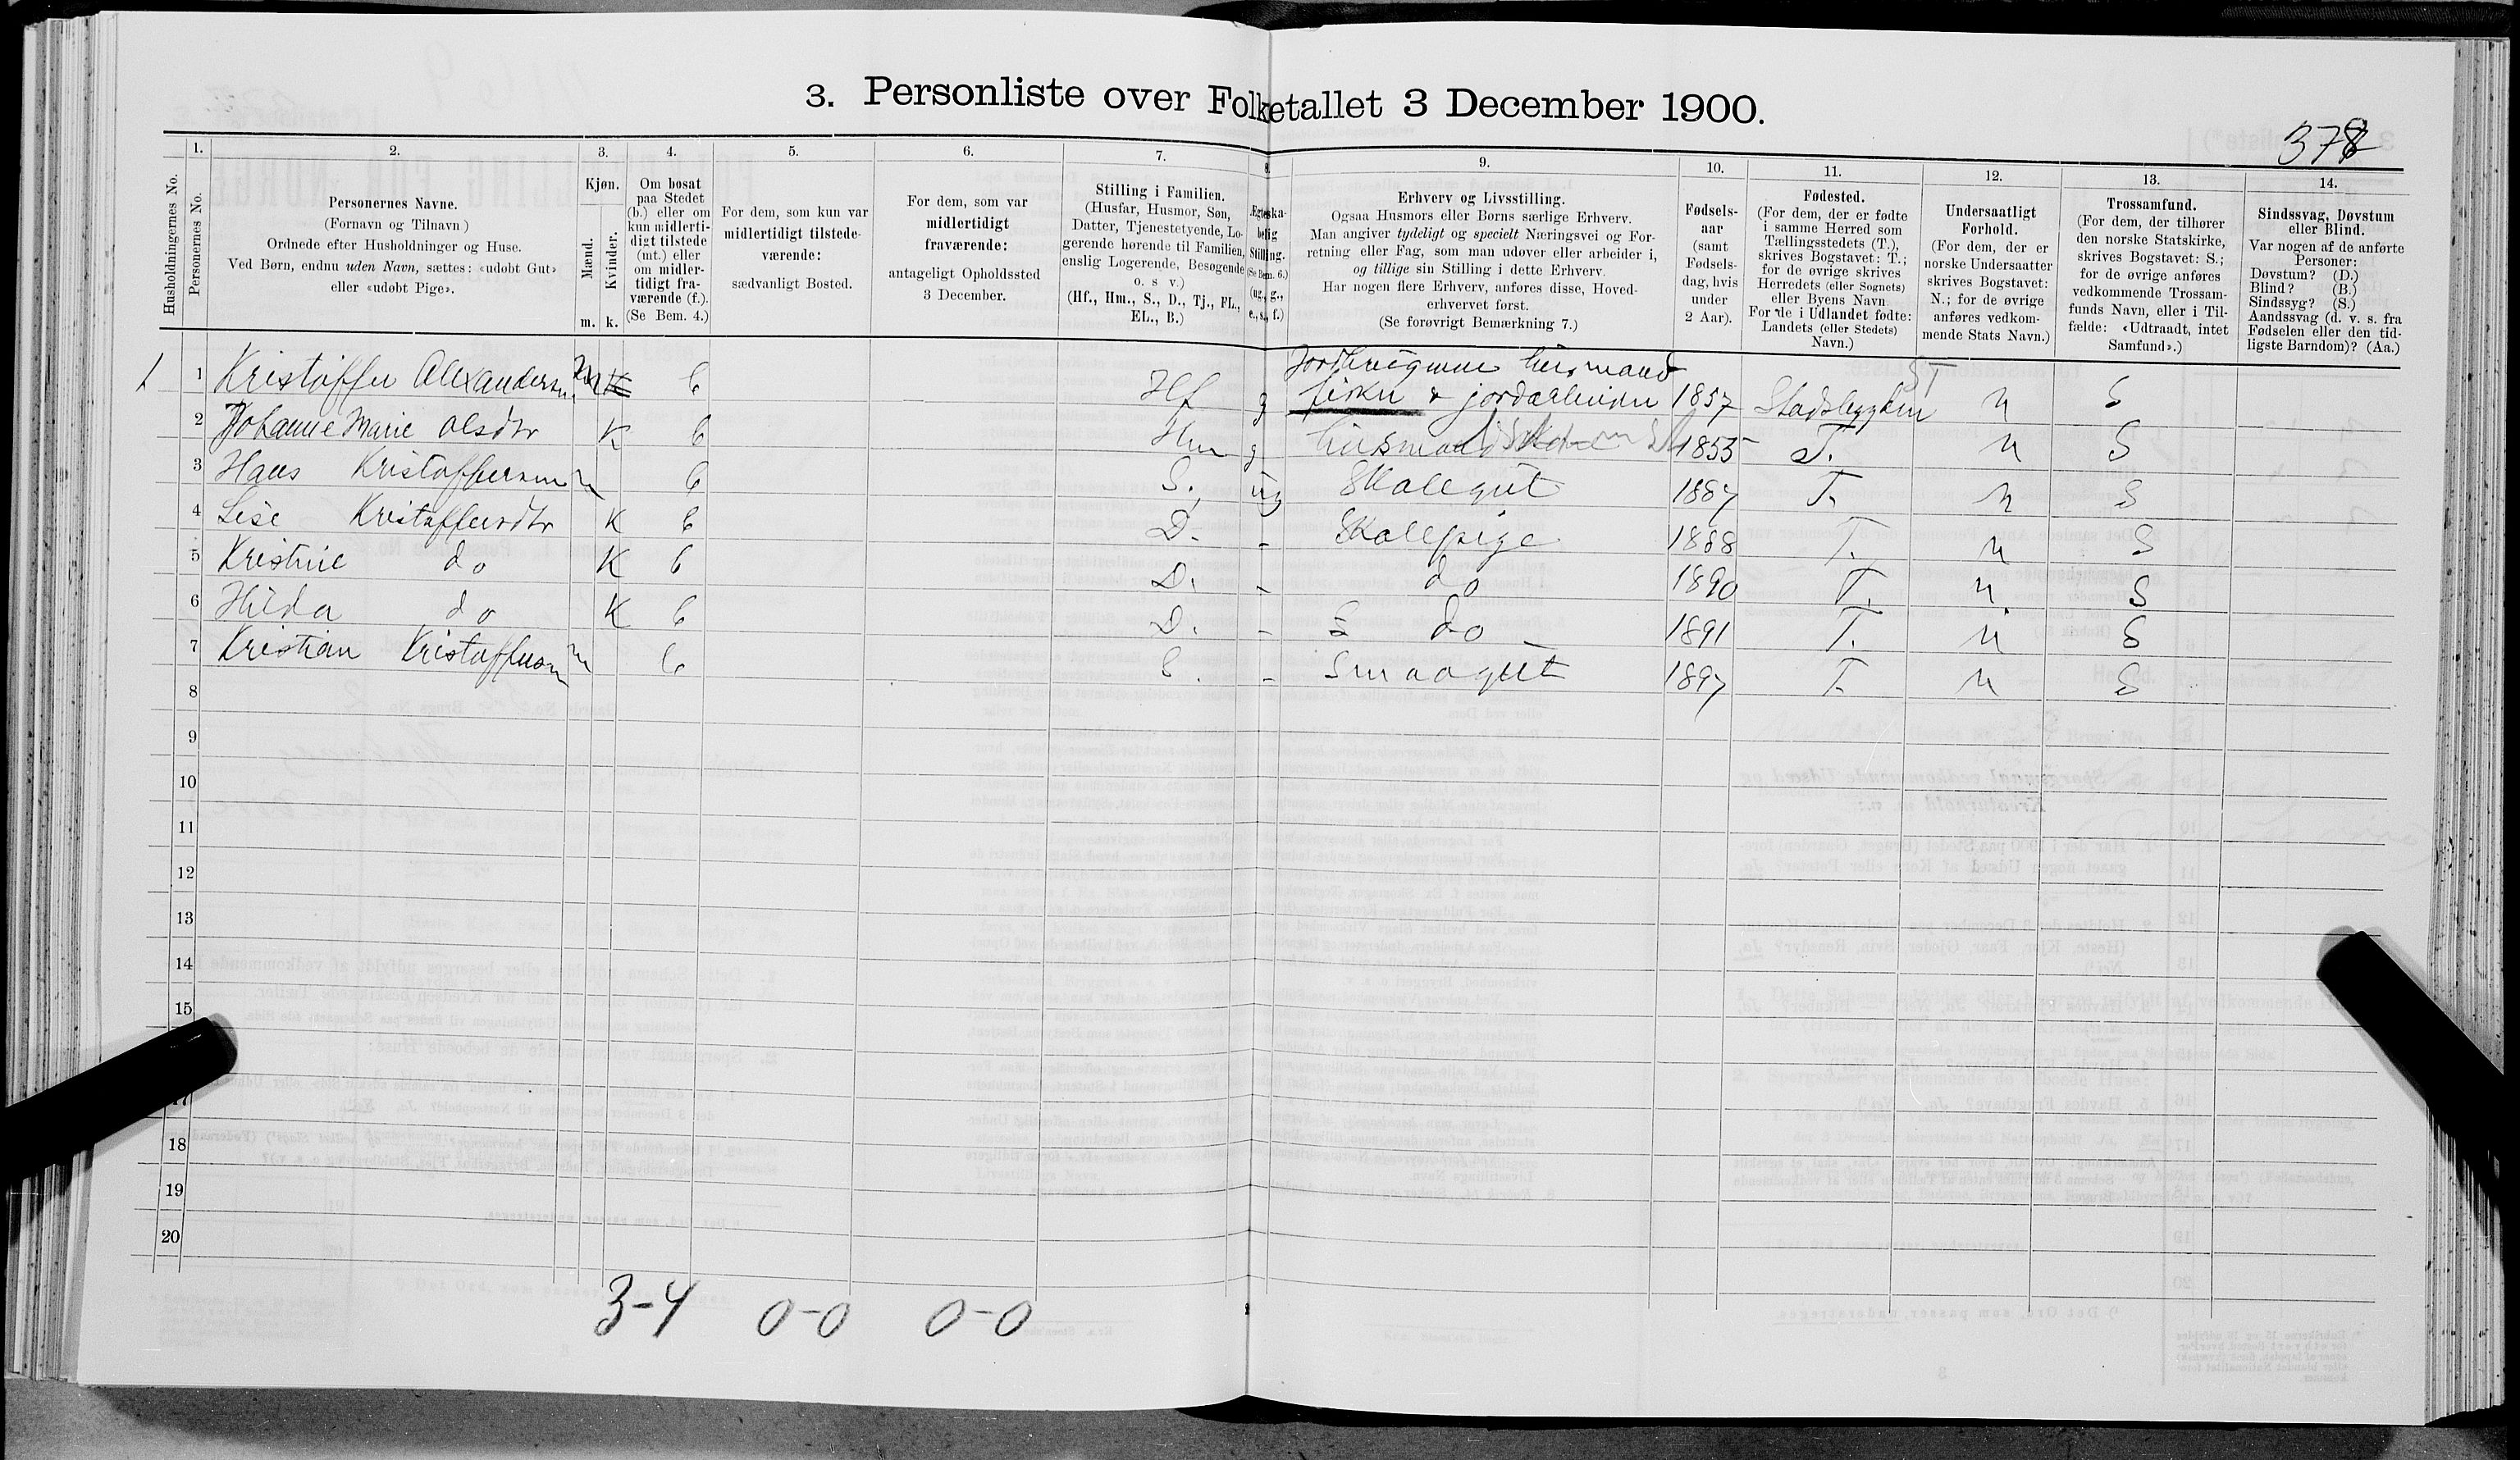 3. Personliste over Folketallet 3 December 1900.
378
1.
2.
3.
4.
5.
6.
7.
8.
9.
10.
11.
12.
13.
14.
Husholdningernes No.
Personernes No.
Personernes Navne.
(Fornavn og Tilnavn)
Ordnede efter Husholdninger og Huse.
Ved Børn, endnu uden Navn, sættes: «udøbt Gut»
eller «udøbt Pige».
Kjøn.
Mænd.
Kvinder.
m. k.
Om bosat
paa Stedet
(b.) eller om
kun midlerti-
digt tilstede
(mt.) eller
om midler-
tidigt fra-
værende (f.).
(Se Bem. 4.)
For dem, som kun var
midlertidigt tilstede-
værende:
sædvanligt Bosted.
For dem, som var
midlertidigt
fraværende:
antageligt Opholdssted
3 December.
Stilling i Familien.
(Husfar, Husmor, Søn,
Datter, Tjenestetyende, Lo-
gerende hørende til Familien,
enslig Logerende, Besøgende
o. s v.)
(Hf., Hm., S., D., Tj., FL.,
EL., B.)
Ægteska-
belig
Stilling.
(Se Bem. 6.)
(ug., g.,
e., s., f.)
Erhverv og Livsstilling.
Ogsaa Husmors eller Børns særlige Erhverv.
Man angiver tydeligt og specielt Næringsvei og For-
retning eller Fag, som man udøver eller arbeider i,
og tillige sin Stilling i dette Erhverv.
Har nogen flere Erhverv, anføres disse, Hoved-
erhvervet først.
(Se forøvrigt Bemærkning 7.)
Fødsels-
aar
(samt
Fødsels-
dag, hvis
under
2 Aar).
Fødested.
(For dem, der er fødte
i samme Herred som
Tællingsstedets (T.),
skrives Bogstavet: T.;
for de øvrige skrives
Herredets (eller Sognets)
eller Byens Navn
For de i Udlandet fødte:
Landets (eller Stedets)
Navn.)
Undersaatligt
Forhold.
(For dem, der er
norske Undersaatter
skrives Bogstavet:
N.; for de øvrige
anføres vedkom-
mende Stats Navn.)
Trossamfund.
(For dem, der tilhører
den norske Statskirke,
skrives Bogstavet: S.;
for de øvrige anføres
vedkommende Trossam-
funds Navn, eller i Til-
fælde: «Udtraadt, intet
Samfund».)
Sindssvag, Døvstum
eller Blind.
Var nogen af de anførte
Personer:
Døvstum? (D.)
Blind? (B.)
Sindssyg? (S.)
Aandssvag (d. v. s. fra
Fødselen eller den tid-
ligste Barndom)? (Aa.)
husmand
ST
1 1 Kristoffer Alexandersn. m K b Hf g fisker & jordarbeider 1857 Stadsbygden n S
2 Johanne Marie Olsdtr K b Hm g 1855 T. n S
3 Hans Kristoffersen m b S. ug Skolegut 1887 T. n S
4 Lise Kristoffersdtr K b D. - Skolepige 1888 T. n S
5 Kristine do K b D. - do 1890 T. n. S
6 Hilda do K b D. - S do - 1891 T. n S
7 Kristian Kristoffersen m b S. - Smaagut 1897 T. n S
8
9
10
11
12
13
14
15
17
18
19
20
3-4 0-0 0-0